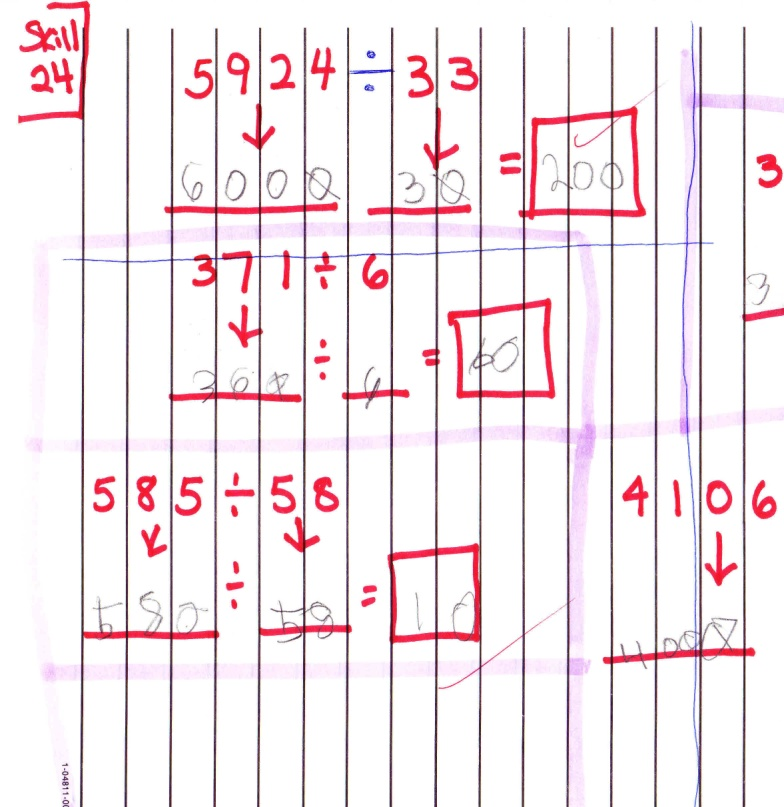 Skill
24
5924 ÷ 33
6000 30 = 200
371 ÷ 6
360 ÷ 6 = 60
585 ÷ 58
580 ÷ 58 = 10
3
3
4106
4000
1-04811-00